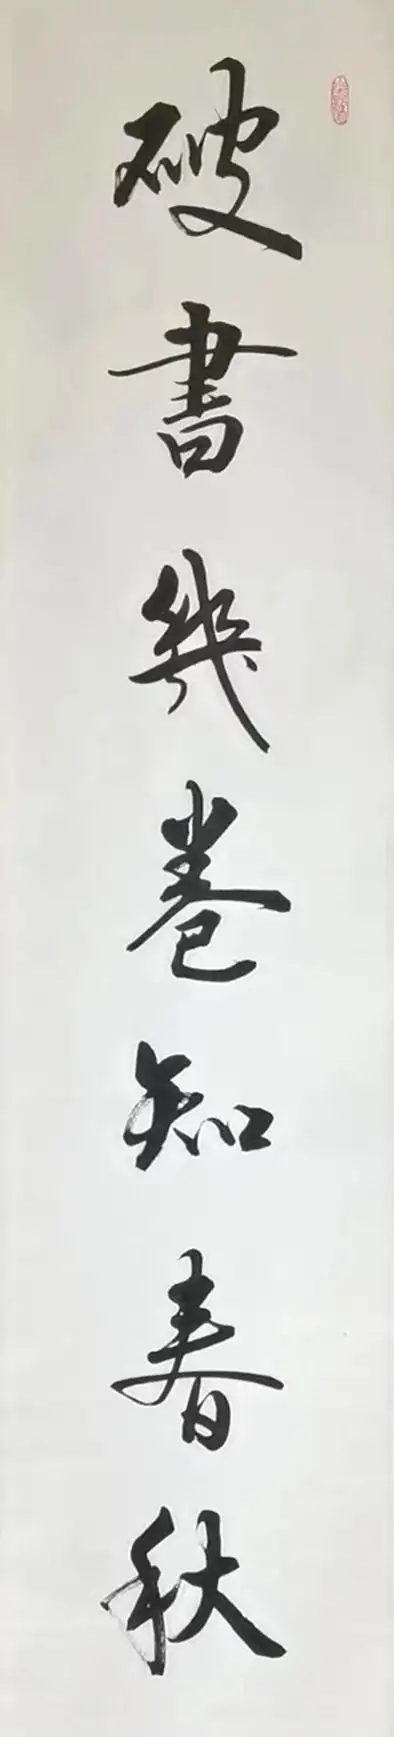 破書幾卷知春秋